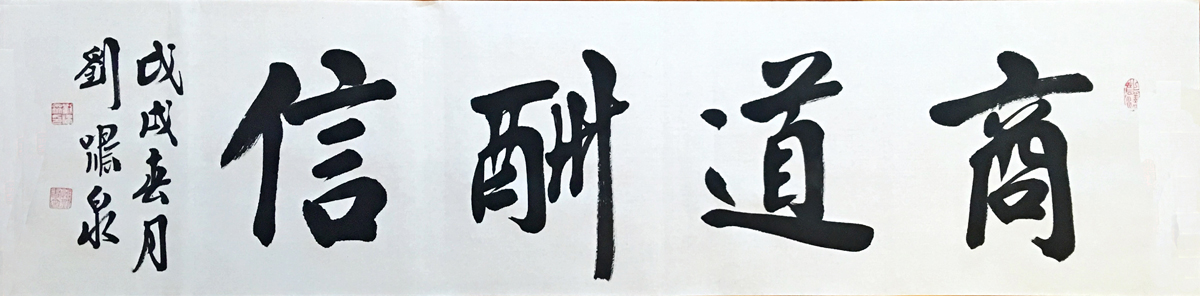 商道酬信
戊戌春月
劉 泉